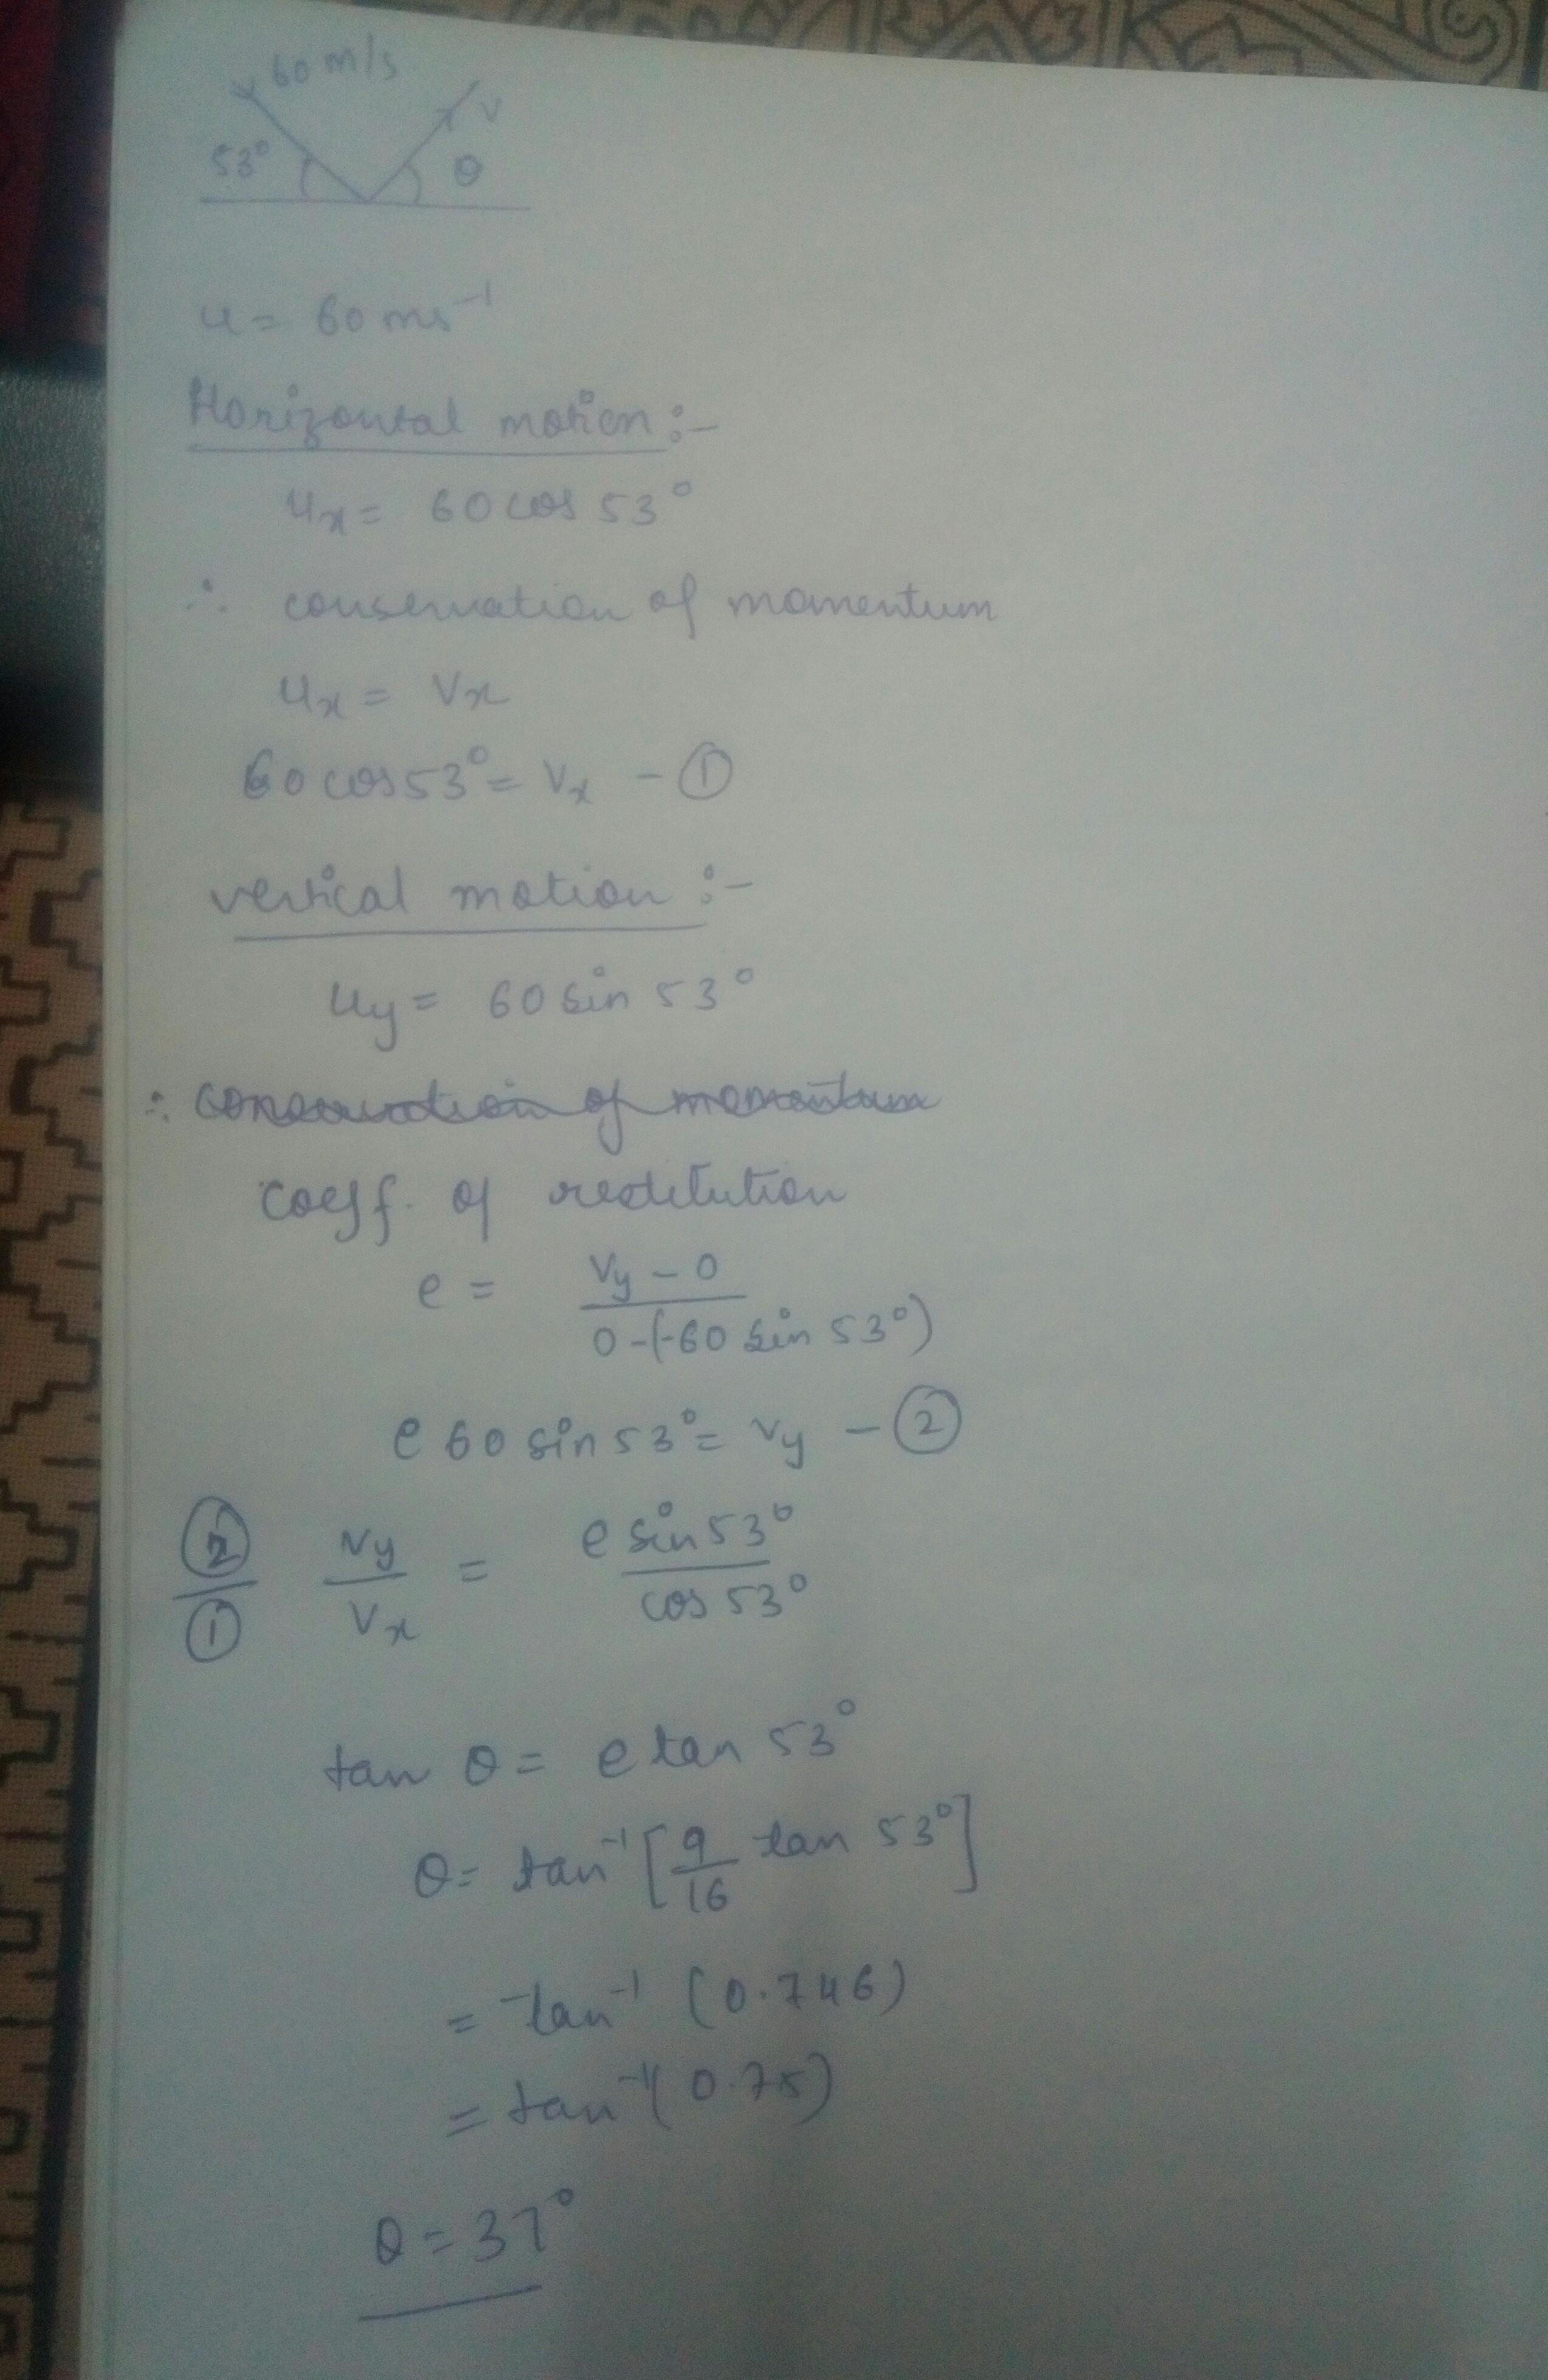 60 m/s
v
53°
θ
u = 60 ms⁻¹
Horizontal motion :-
uₓ = 60 cos 53°
∴ conservation of momentum
uₓ = vₓ
60 cos 53° = vₓ - ①
vertical motion :-
u_y = 60 sin 53°
∴ conservation of momentum
coeff. of restitution
e = (v_y - 0) / (0 - (-60 sin 53°))
e 60 sin 53° = v_y - ②
②/① v_y/vₓ = e sin 53° / cos 53°
tan θ = e tan 53°
θ = tan⁻¹ [9/16 tan 53°]
= tan⁻¹ (0.746)
= tan⁻¹ (0.75)
θ = 37°